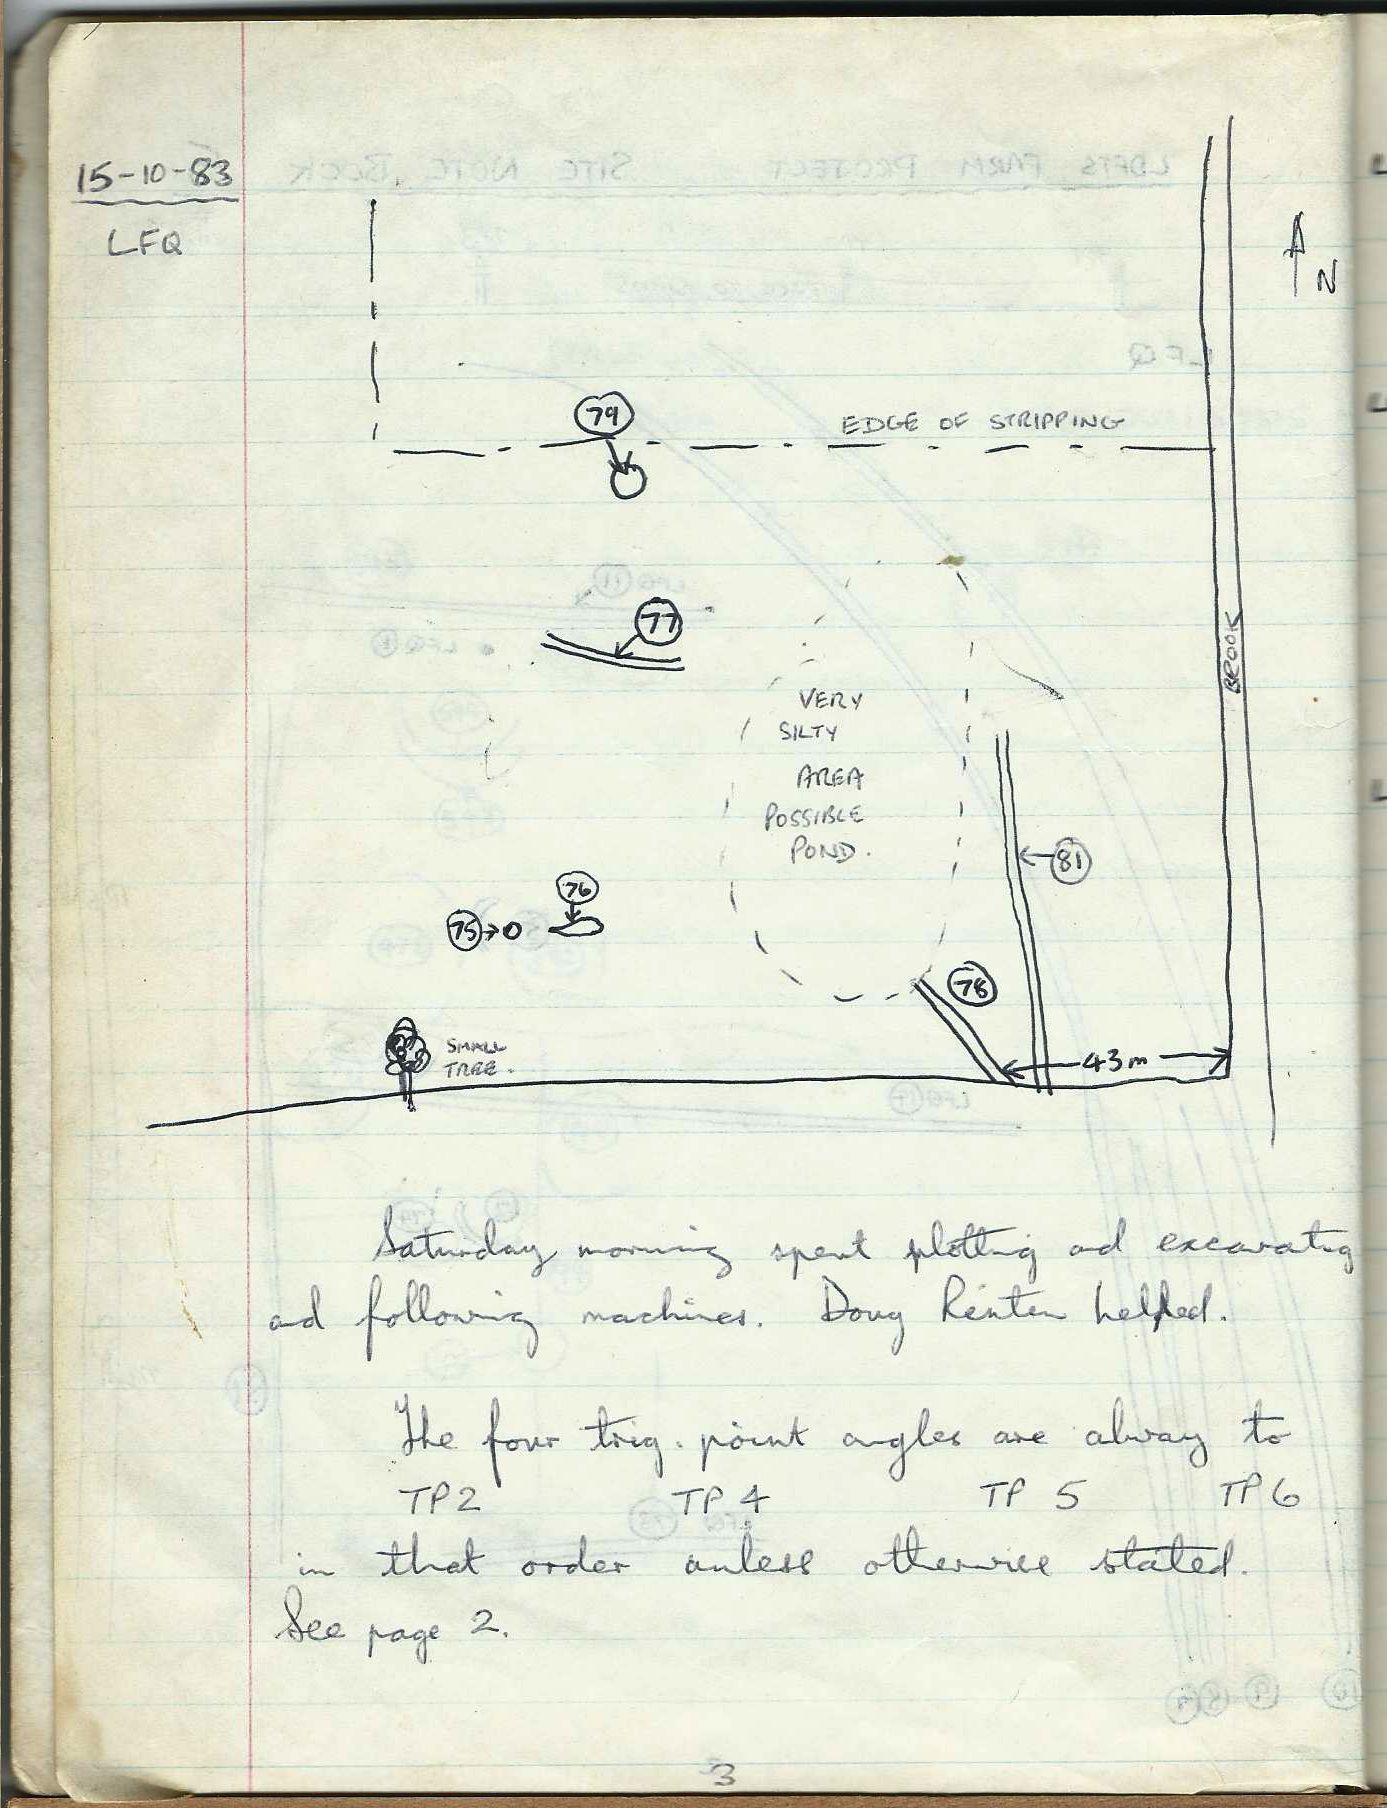 15-10-83
LFQ
N
79
EDGE OF STRIPPING
77
BROOK
VERY
SILTY
AREA
POSSIBLE
POND.
81
76
75
78
SMALL
TREE.
43m
Saturday morning spent plotting and excavating
and following machines. Doug helped.
The four trig. point angles are alway to
TP2 TP 4 TP 5 TP 6
in that order unless otherwise stated.
See page 2.
3